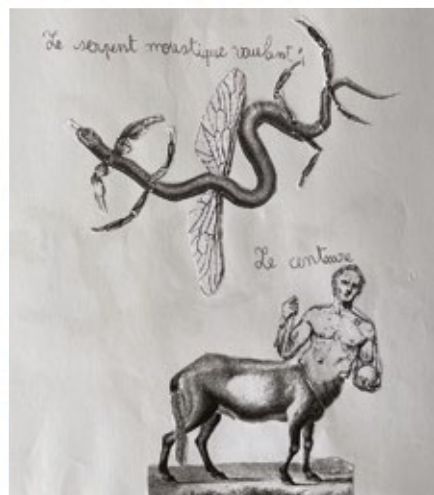 Le serpent moustique voulant;
Le centaure